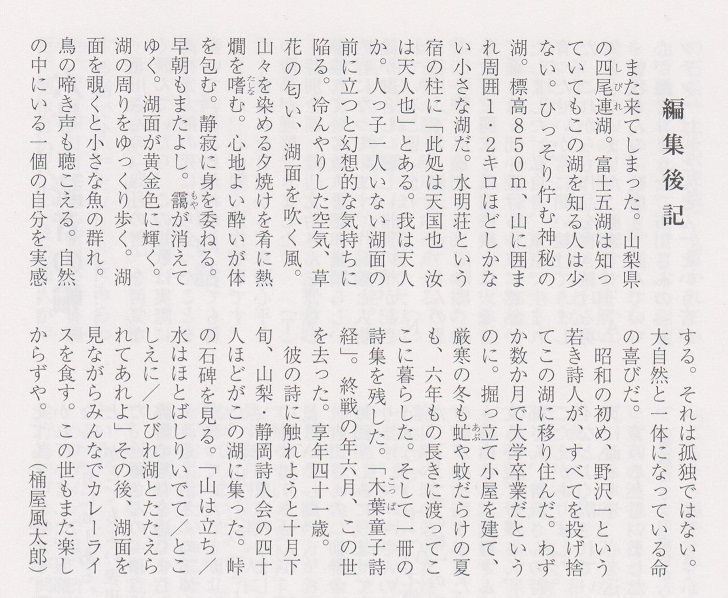 編集後記
また来てしまった。山梨県
の四尾連湖。富士五湖は知っ
ていてもこの湖を知る人は少
ない。ひっそり佇む神秘の
湖。標高850m、山に囲ま
れ周囲1・2キロほどしかな
い小さな湖だ。水明荘という
宿の柱に「此処は天国也　汝
は天人也」とある。我は天人
か。人っ子一人いない湖面の
前に立つと幻想的な気持ちに
陥る。冷んやりした空気、草
花の匂い、湖面を吹く風。
山々を染める夕焼けを肴に熱
燗を嗜む。心地よい酔いが体
を包む。静寂に身を委ねる。
早朝もまたよし。靄が消えて
ゆく。湖面が黄金色に輝く。
湖の周りをゆっくり歩く。湖
面を覗くと小さな魚の群れ。
鳥の啼き声も聴こえる。自然
の中にいる一個の自分を実感
する。それは孤独ではない。
大自然と一体になっている命
の喜びだ。
昭和の初め、野沢一という
若き詩人が、すべてを投げ捨
てこの湖に移り住んだ。わず
か数か月で大学卒業だという
のに。掘っ立て小屋を建て、
厳寒の冬も虻や蚊だらけの夏
も、六年もの長きに渡ってこ
こに暮らした。そして一冊の
詩集を残した。「木葉童子詩
経」。終戦の年六月、この世
を去った。享年四十一歳。
彼の詩に触れようと十月下
旬、山梨・静岡詩人会の四十
人ほどがこの湖に集った。峠
の石碑を見る。「山は立ち／
水はほとばしりいでて／とこ
しえに／しびれ湖とたたえら
れてあれよ」その後、湖面を
見ながらみんなでカレーライ
スを食す。この世もまた楽し
からずや。　　（桶屋風太郎）